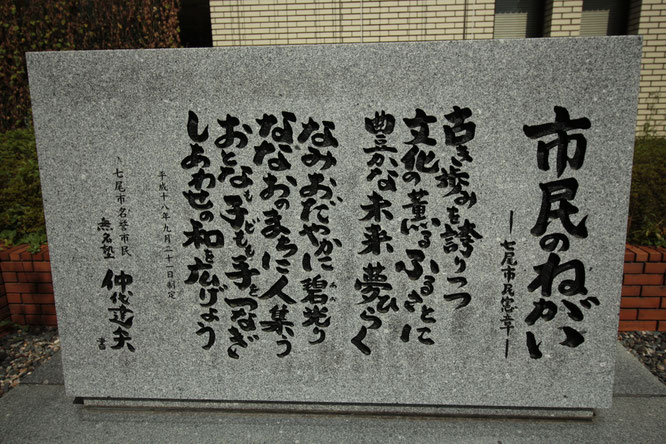 市民のねがい
―七尾市民憲章―
古き歩みを誇りつつ
文化の薫るふるさとに
豊かな未来夢ひらく
なみおだやかに碧光り
ななおのまちに人集う
おとなも子どもも手をつなぎ
しあわせの和を広げよう
平成十八年九月二十一日制定
七尾市名誉市民
無名塾 仲代達矢 書